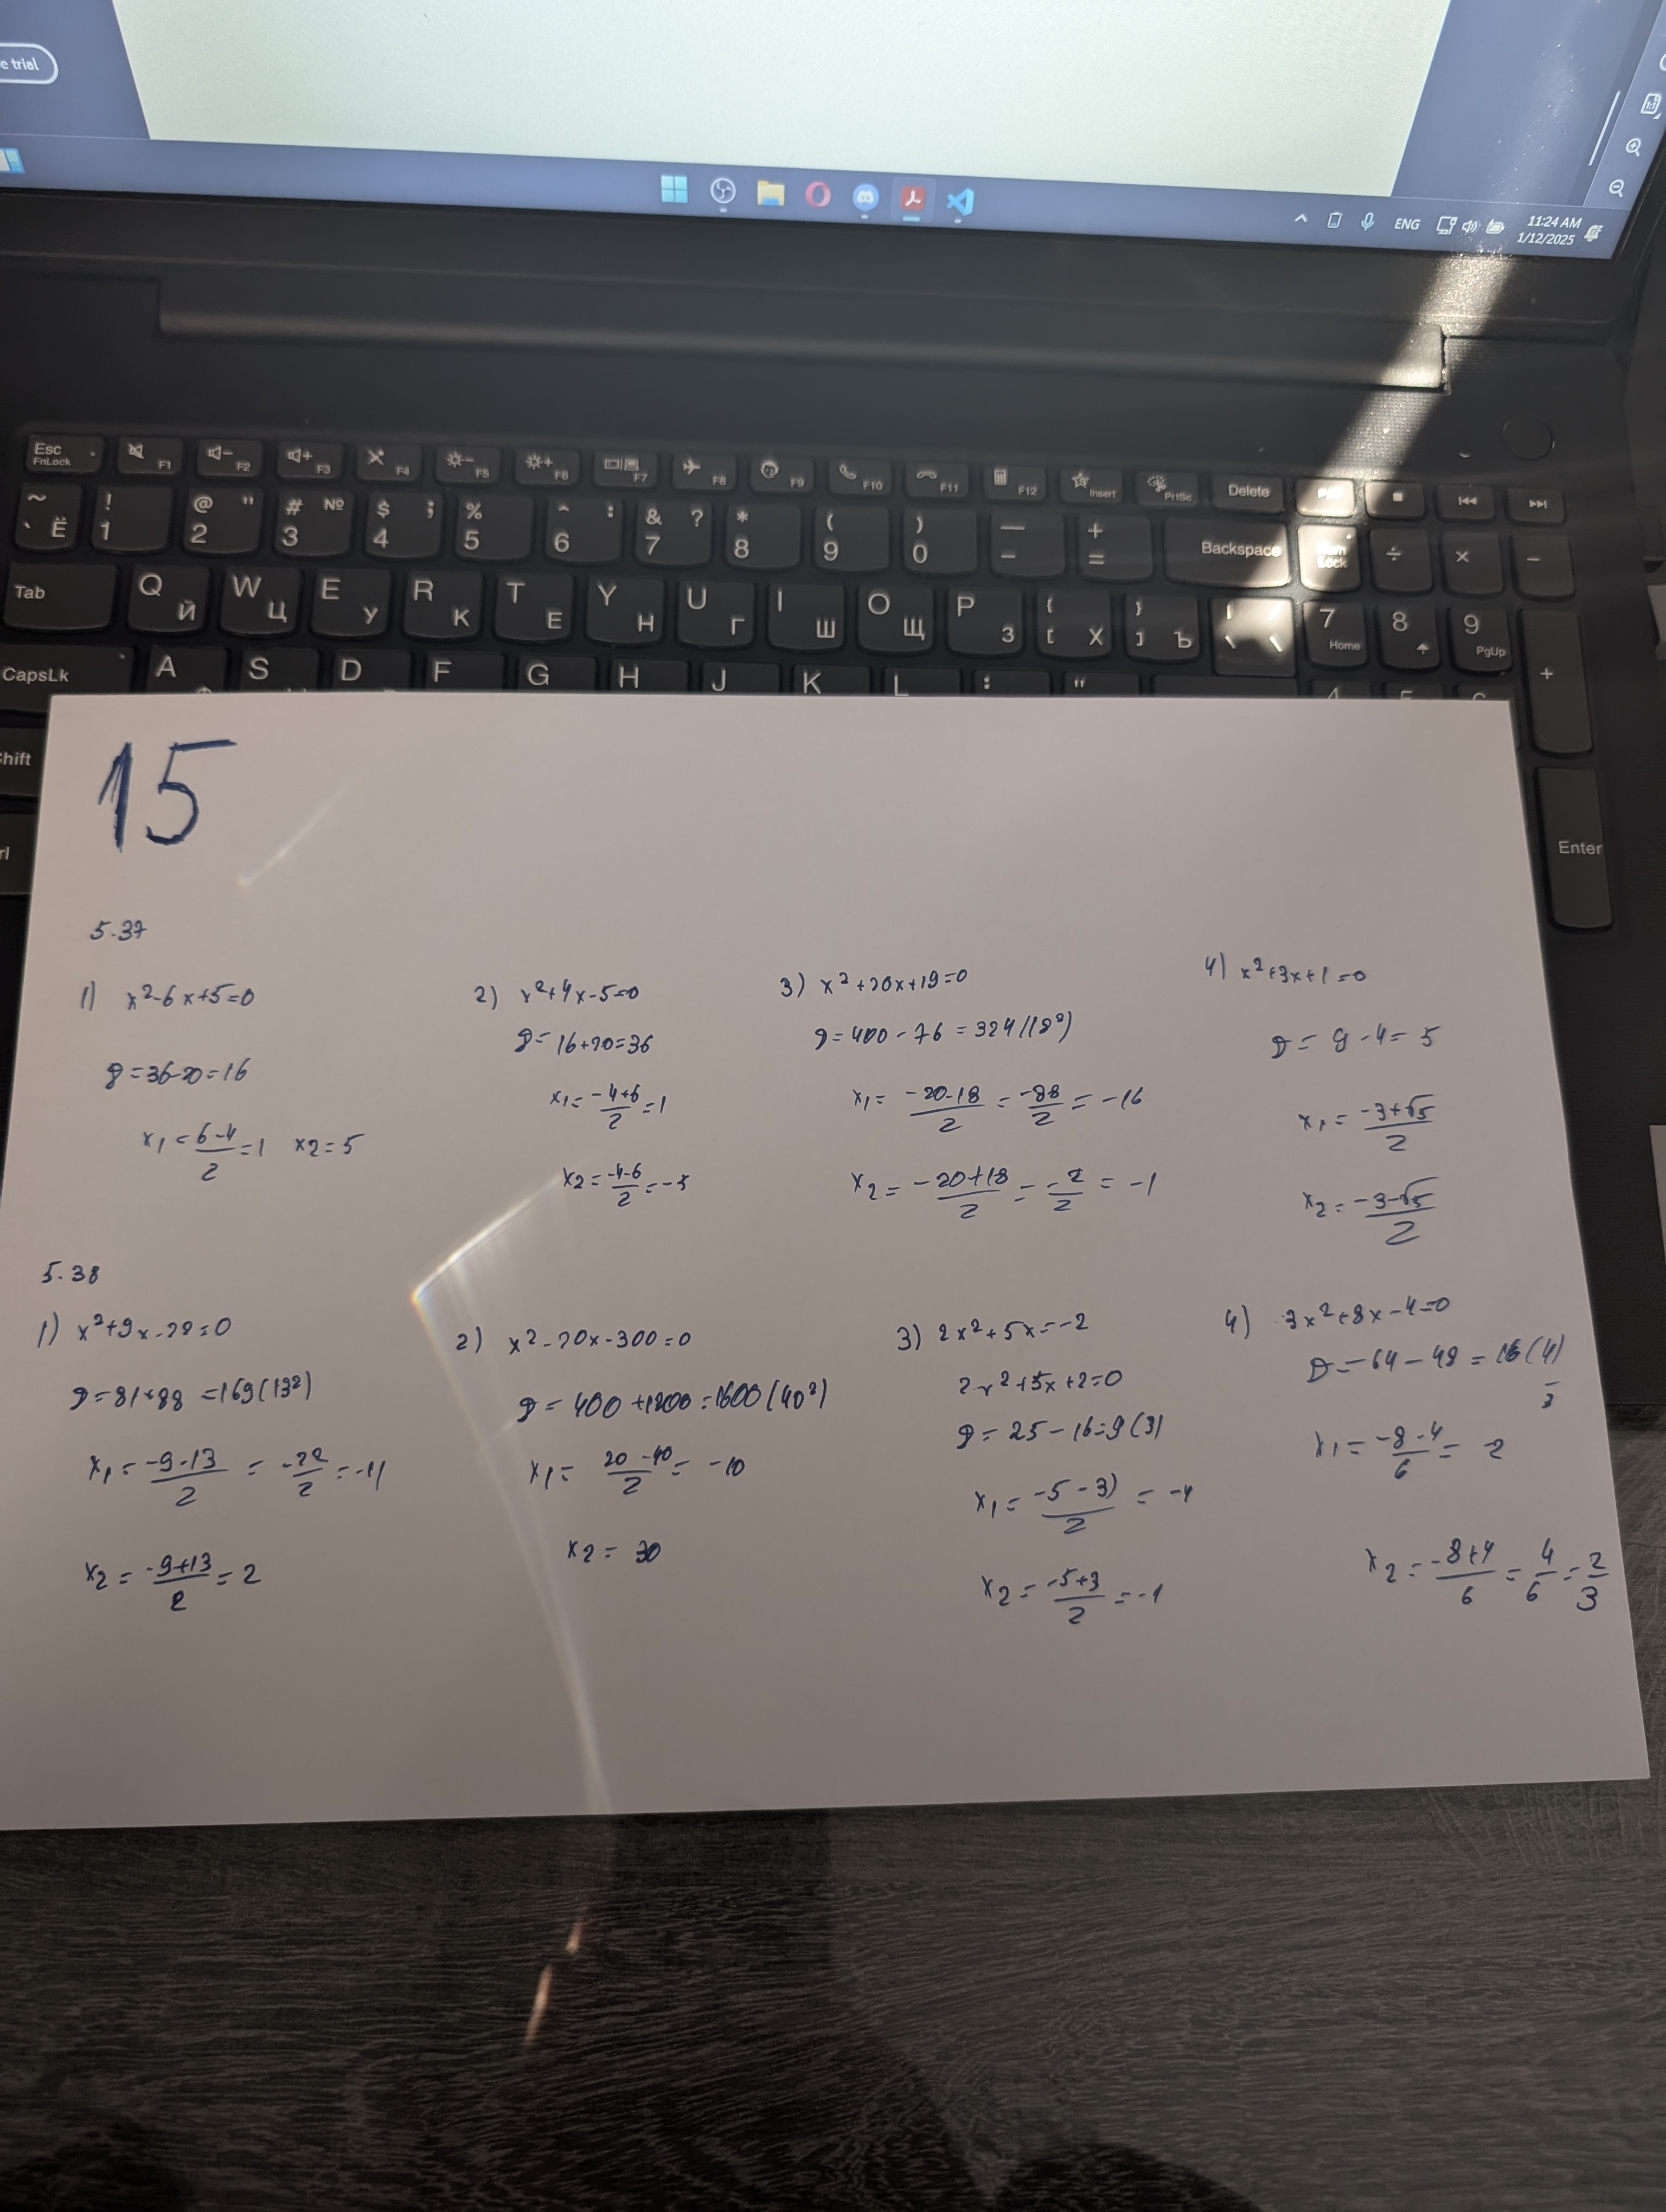 e trial
ENG
11:24 AM
1/12/2025
Esc
FnLock
F1
F2
F3
F4
F5
F6
F7
F8
F9
F10
F11
F12
Insert
PrtSc
Delete
~ ` Ё
! 1
@ " 2
# № 3
$ ; 4
% 5
^ : 6
& ? 7
* 8
( 9
) 0
— -
+ =
Backspace
Num Lock
÷
×
−
Tab
Q Й
W Ц
E У
R К
T Е
Y Н
U Г
I Ш
O Щ
P З
{ [ Х
} ] Ъ
7 Home
8
9 PgUp
+
CapsLk
A
S
D
F
G
H
J
K
L
:
"
Shift
Enter
15
5.37
1) x²-6x+5=0
D=36-20=16
x1=(6-4)/2=1 x2=5
2) x²+4x-5=0
D=16+20=36
x1=(-4+6)/2=1
x2=(-4-6)/2=-5
3) x²+20x+19=0
D=400-76=324(18²)
x1=(-20-18)/2=-38/2=-16
x2=(-20+18)/2=-2/2=-1
4) x²+3x+1=0
D=9-4=5
x1=(-3+√5)/2
x2=(-3-√5)/2
5.38
1) x²+9x-22=0
D=81+88=169(13²)
x1=(-9-13)/2=-22/2=-11
x2=(-9+13)/2=2
2) x²-20x-300=0
D=400+1200=1600(40²)
x1=(20-40)/2=-10
x2=30
3) 2x²+5x=-2
2x²+5x+2=0
D=25-16=9(3)
x1=(-5-3)/2=-4
x2=(-5+3)/2=-1
4) 3x²+8x-4=0
D=64-48=16(4)
x1=(-8-4)/6=-2
x2=(-8+4)/6=4/6=2/3